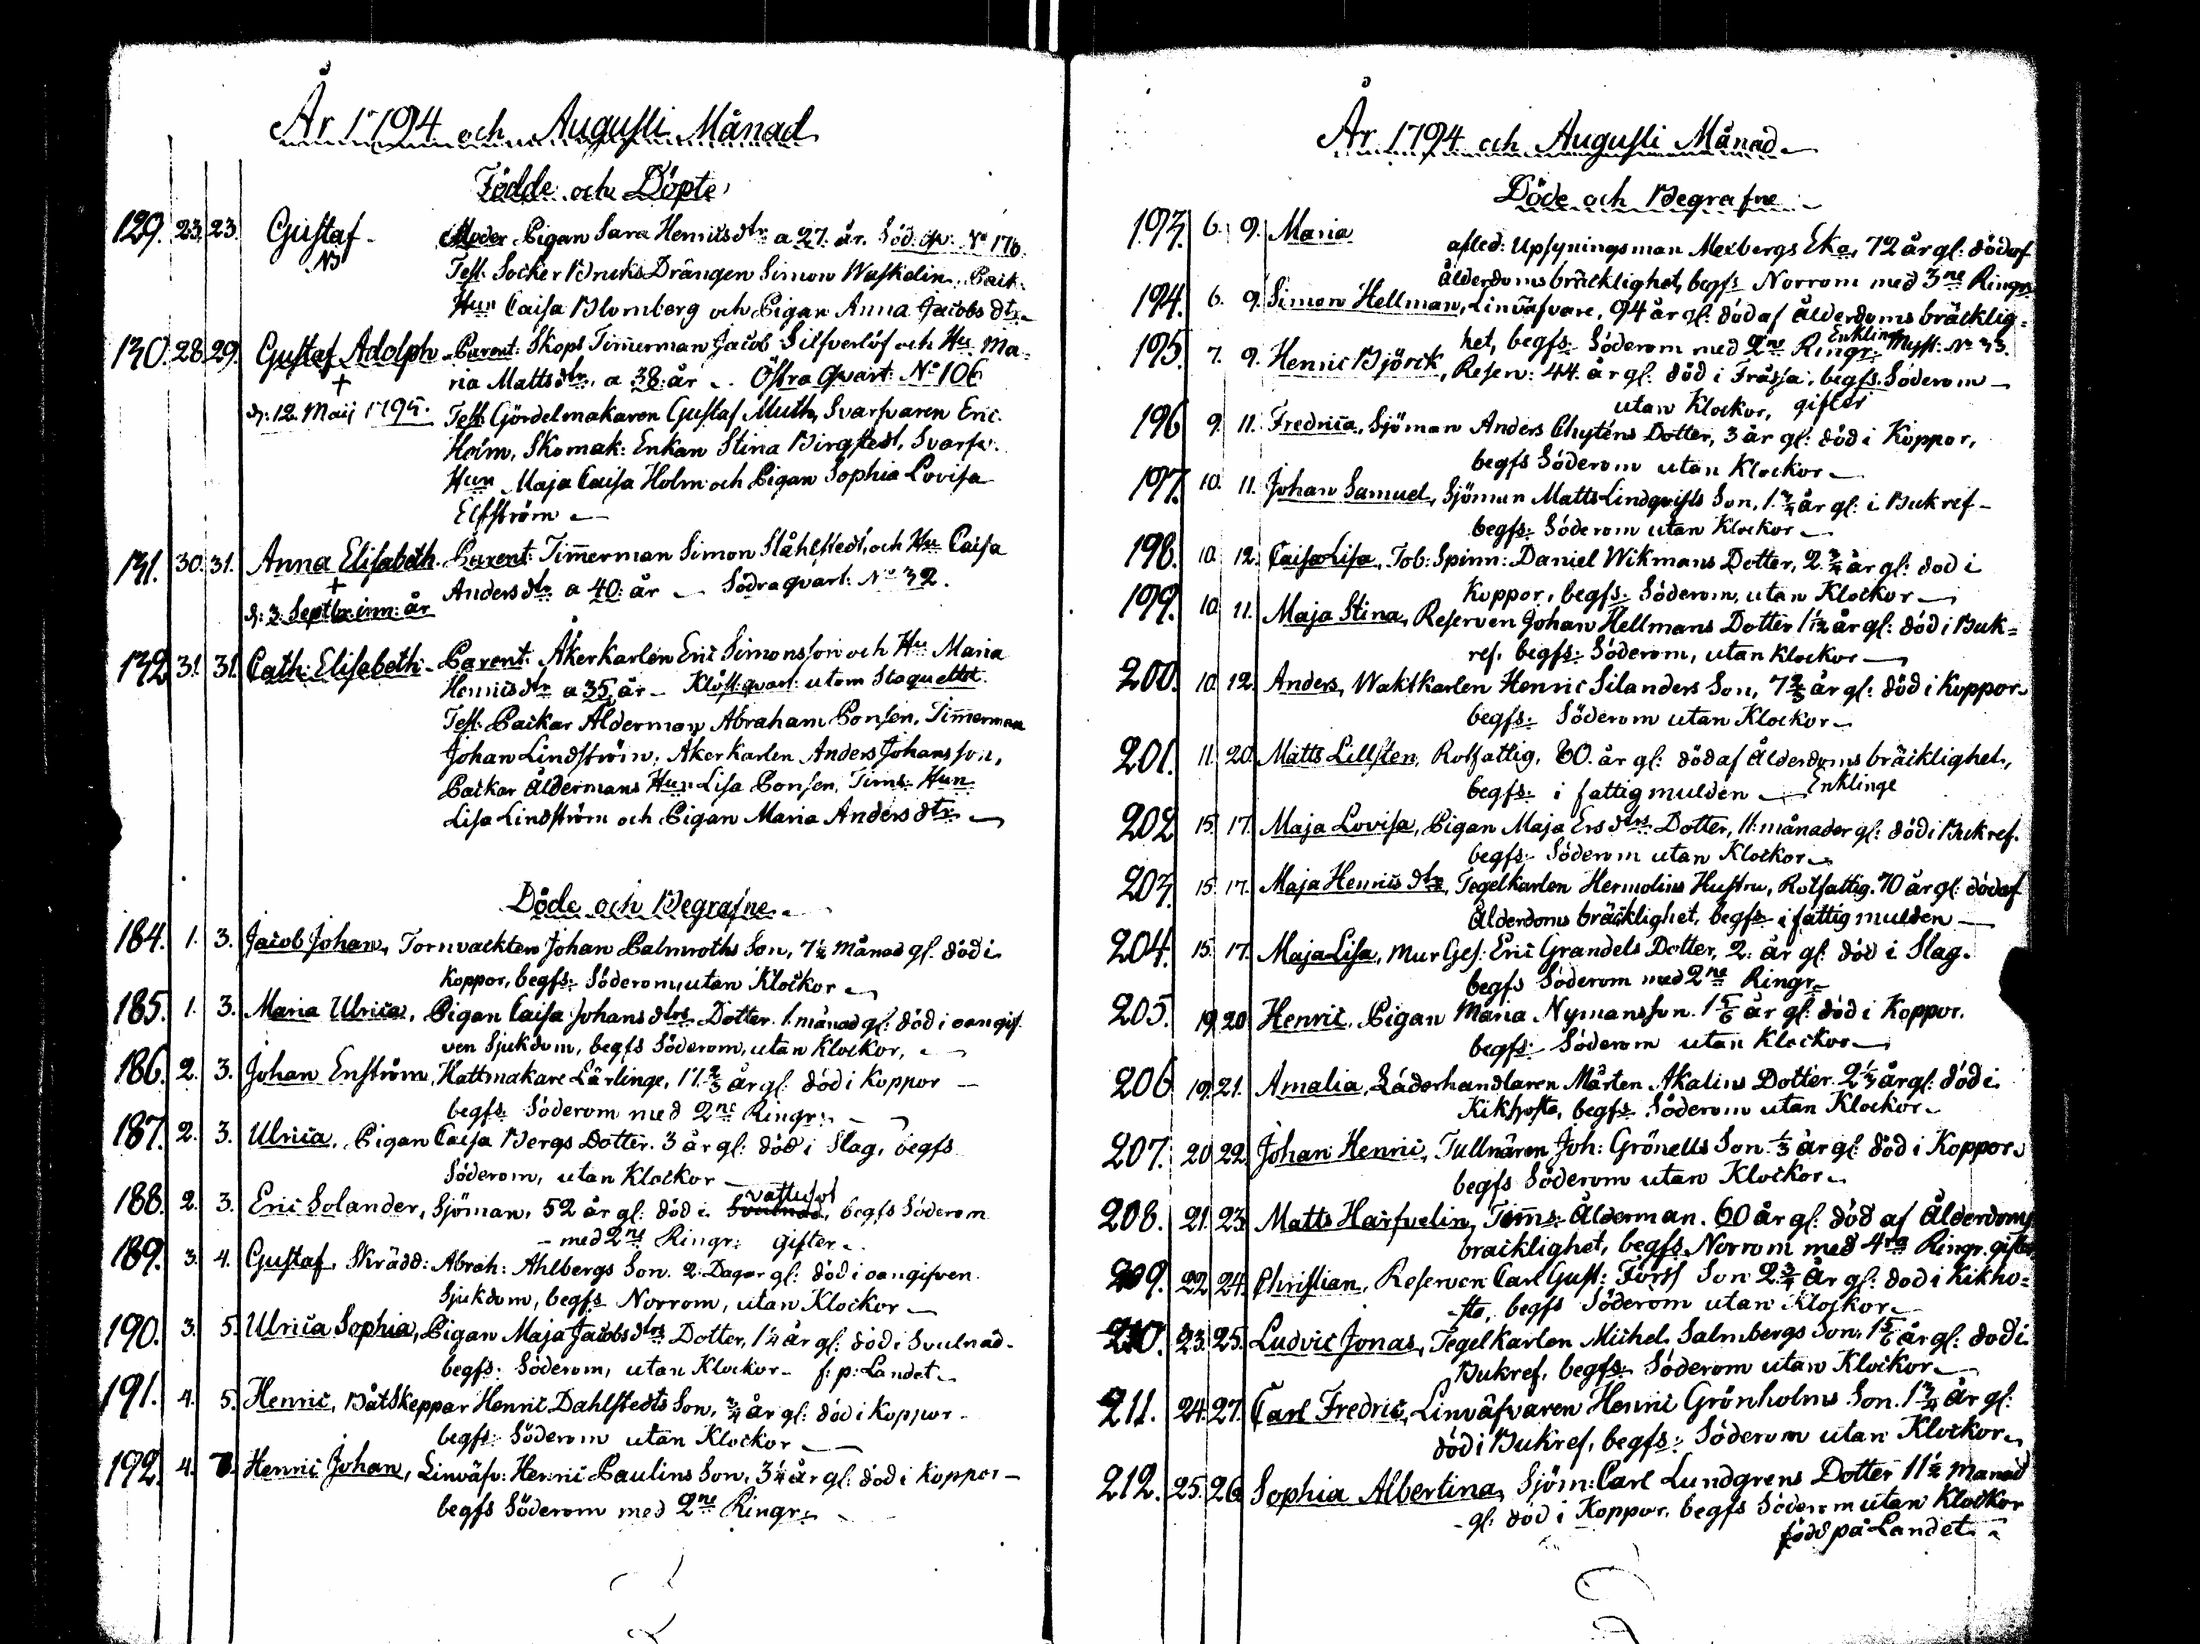 År 1794 och Augusti Månad
Födde och Döpte
129. 23. 23. Gustaf. Moder Pigan Sara Henricsdtr a 27. år. Söd. qv: No 176.
Test. Socker Bruks Drängen Simon Waskelin, Pack.
Hun Caisa Blomberg och Pigan Anna Jacobs dtr
130. 28. 29. Gustaf Adolph Parent: Skeps Timerman Jacob Silfverlöf och Hu. Ma-
+ ria Mattsdtr, a 38. år. Östra Qvart. No 106
d: 12 Maij 1795. Test. Gördelmakaren Gustaf Muth, Svarfvaren Eric
Holm, Skomak: Enkan Stina Birgstedt, Svarfv:
Hun Maja Caisa Holm och Pigan Sophia Lovisa
Elfström
131. 30. 31. Anna Elisabeth. Parent: Timerman Simon Ståhlstedt, och Hu Caisa
+ Andersdtr a 40. år Södra qvart: No 32.
d: 3. Septbr: inn: år
132 31. 31. Cath: Elisabeth. Parent: Åkerkarlen Eric Simonsson och Hu Maria
Henricsdtr a 35 år Klöst: qvart: utom Staquettet.
Test. Packar Ålderman Abraham Ponsen, Timerman
Johan Lindström, Åkerkarlen Anders Johansson,
Packar Åldermans Hun Lisa Ponsen, Tims. Hun
Lisa Lindström och Pigan Maria Anders dtr
Döde och Begrafne.
184. 1. 3. Jacob Johan, Tornvackten Johan Palmroths Son, 7½ Månad gl. död i
Koppor, begfs. Söderom, utan Klockor
185. 1. 3. Maria Ulrica, Pigan Caisa Johans dtrs Dotter. 1. månad gl: död i oangif
ven Sjukdom, begfs Söderom, utan Klockor,
186. 2. 3. Johan Enström, Hattmakare Lärlinge, 17⅔ år gl: död i Koppor
begfs. Söderom med 2ne Ringr:
187. 2. 3. Ulrica, Pigan Caisa Bergs Dotter. 3 år gl: död i Slag, begfs
Söderom, utan Klockor
vattusot
188. 2. 3. Eric Solander, Sjöman, 52 år gl: död i Svulnad, begfs Söderom
med 2ne Ringr: gifter
189. 3. 4. Gustaf, Skrädd: Abrah: Ahlbergs Son. 2. Dagar gl: död i oangifven
Sjukdom, begfs Norrom, utan Klockor
190. 3. 5. Ulrica Sophia, Pigan Maja Jacobs dtrs Dotter, 1¼ år gl: död i Svulnad.
begfs: Söderom, utan Klockor f: p: Landet
191. 4. 5. Henric, BåtSkeppar Henric Dahlstedts Son, ¾ år gl: död i Koppor
begfs: Söderom utan Klockor
192. 4. 7. Henric Johan, Linväfv: Henric Paulins Son, 3¼ år gl: död i Koppor
begfs Söderom med 2ne Ringr:
År 1794 och Augusti Månad
Döde och Begrafne
193. 6. 9. Maria afled: Upsyningsman Mexbergs Eka, 72 år gl: död af
Ålderdoms bräcklighet, begfs Norrom med 3ne Ringr
194. 6. 9. Simon Hellman, Linväfvare, 94 år gl: död af Ålderdoms bräcklig-
het, begfs: Söderom med 2ne Ringr. Enkling
195. 7. 9. Henric Björck, Reserv: 44. år gl: död i Frossa, begfs. Söderom
utan Klockor, gifter
196 9. 11. Fredrica, Sjöman Anders Chyténs Dotter, 3 år gl: död i Koppor,
begfs Söderom utan Klockor
197. 10. 11. Johan Samuel, Sjöman Matts Lindqvists Son, 1¾ år gl: i Bukref
begfs: Söderom utan Klockor
198. 10. 12. Caisa Lisa, Tob: Spinn: Daniel Wikmans Dotter, 2¾ år gl: död i
Koppor, begfs: Söderom, utan Klockor
199. 10. 11. Maja Stina, Reserven Johan Hellmans Dotter 1 1/12 år gl: död i Buk-
ref, begfs: Söderom, utan Klockor
200. 10. 12. Anders, Waktkarlen Henric Silanders Son, 7⅔ år gl: död i Koppor
begfs: Söderom utan Klockor
201. 11. 20. Matts Lillsten, Rotfattig, 60. år gl: död af Ålderdoms bräcklighet,
begfs: i fattigmulden Enklinge
202 15. 17. Maja Lovisa, Pigan Maja Ersdtrs Dotter, 11. månader gl: död i Bukref.
begfs: Söderom utan Klockor
203. 15. 17. Maja Henrics dtr, Tegelkarlen Hermolins Hustru, Rotfattig. 70 år gl: död af
Ålderdoms bräcklighet, begfs i fattigmulden
204. 15. 17. Maja Lisa, Mur Ges: Eric Grandels Dotter, 2. år gl: död i Slag.
begfs Söderom med 2ne Ringr
205. 19. 20 Henric. Pigan Maria Nymans son. 1 5/6 år gl: död i Koppor.
begfs: Söderom utan Klockor
206 19. 21. Amalia, Läderhandlaren Mårten Akalins Dotter. 2⅓ år gl: död i
Kikhosta, begfs. Söderom utan Klockor
207. 20 22 Johan Henric, Tullnären Joh: Grönells Son ⅓ år gl: död i Koppor
begfs Söderom utan Klockor
208. 21. 23. Matts Harfvelin, Tims. Ålderman. 60 år gl: död af Ålderdoms
bräcklighet, begfs Norrom med 4ra Ringr. gifter
209. 22 24. Christian, Reserven Carl Gust: Förss Son 2¾ år gl: död i Kikho-
sta, begfs Söderom utan Klockor
210. 23. 25. Ludvic Jonas, Tegelkarlen Michel Salmbergs Son, 1 5/6 år gl: död i
Bukref, begfs: Söderom utan Klockor
211. 24. 27. Carl Fredric, Linväfvaren Henric Grönholms Son. 1¾ år gl:
död i Bukref, begfs: Söderom utan Klockor
212. 25. 26 Sophia Albertina, Sjöm: Carl Lundgrens Dotter 11½ Manad
gl: död i Koppor, begfs Söderom utan Klockor
född på Landet